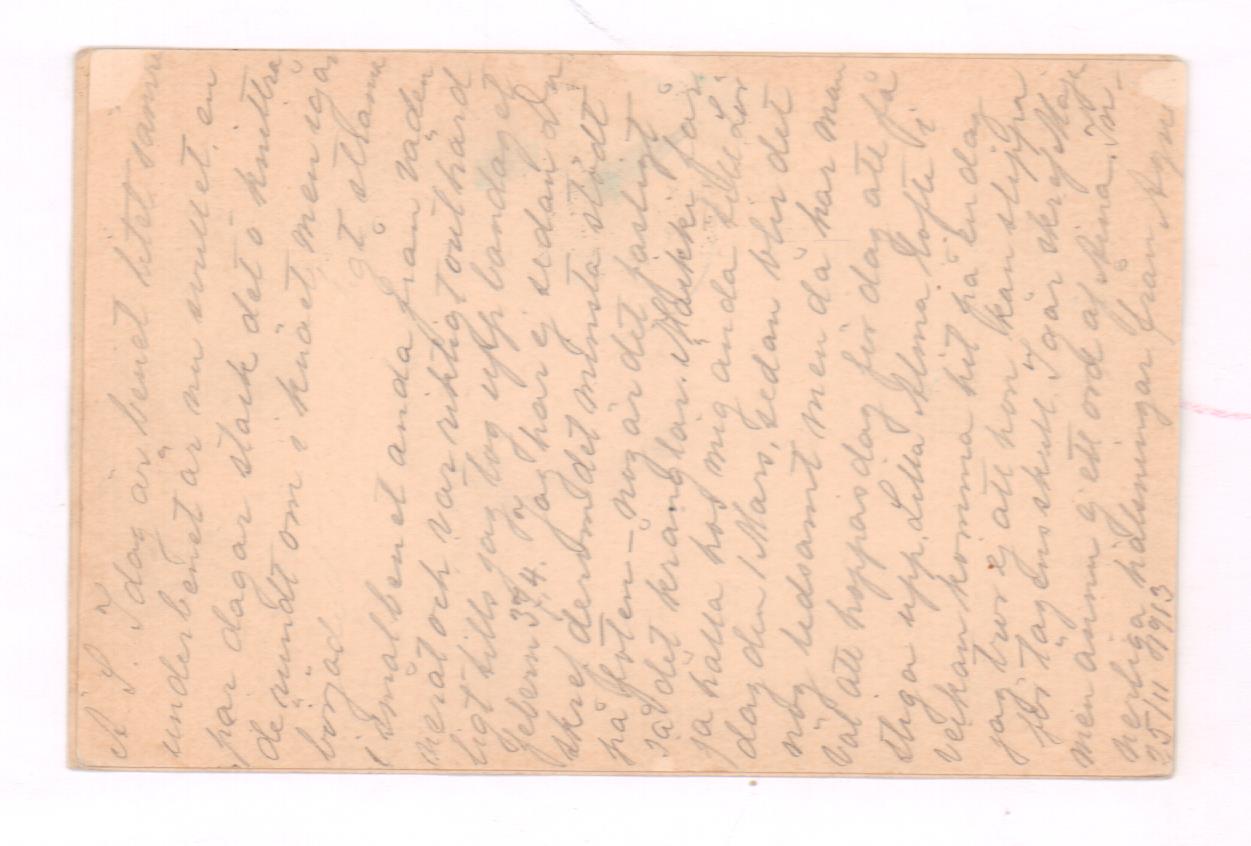 A S. I dag är benet litet samma
underbenet är nu svullet, en
par dagar stack det o knottra
de rundt om i knäet men igår
började
i smalbenet ända från vaden
neråt och var riktigt outhärd
ligt tills jag tog upp bandaget
febern 37,4. Jag har ej sedan Du
skref derom det minsta stödt
på foten – nog är det fasligt
så det krånglar. Näcki får
ja hålla hos mig ända till Lör
dag den 1 Mars, sedan blir det
nog ledsamt men då har man
väl att hoppas dag för dag att få
stiga upp. Lilla Alma lofte i
veckan komma hit på en dag
jag tror ej att hon kan slippa
för tågens skull. Igår skref Maja
men ännu ej ett ord af Nina. In-
nerliga hälsningar från Agne
25/II 1913